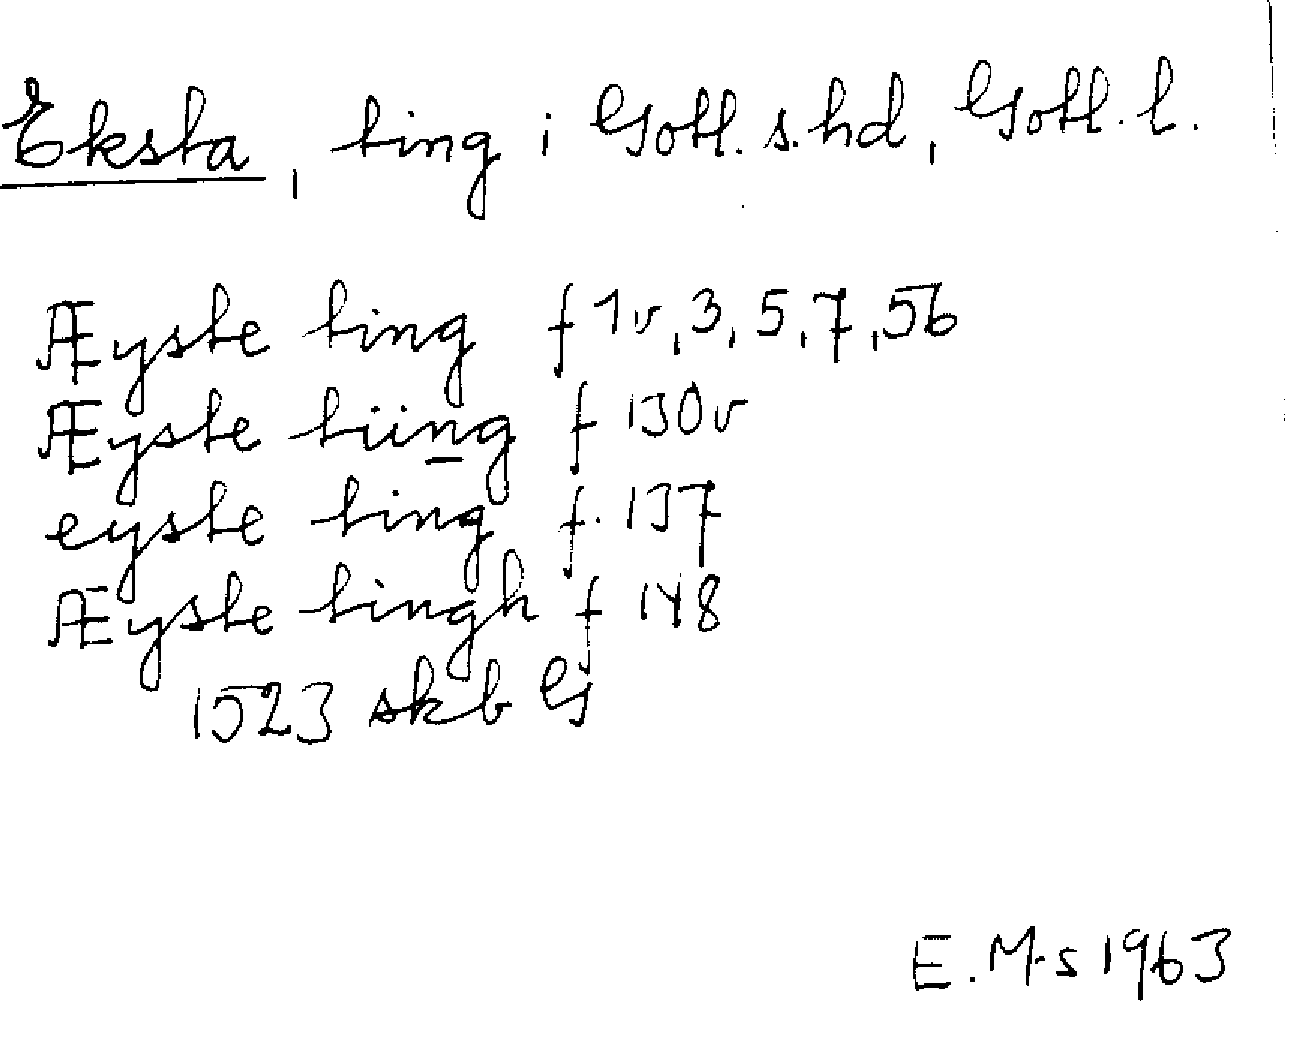 Eksta, ting i Gotl. s. hd, Gotl. l.
Æyste ting f 1v, 3, 5, 7, 56
Æyste tiing f 130v
eyste ting f. 137
Æyste tingh f 148
1523 skb G
E. M-s 1963